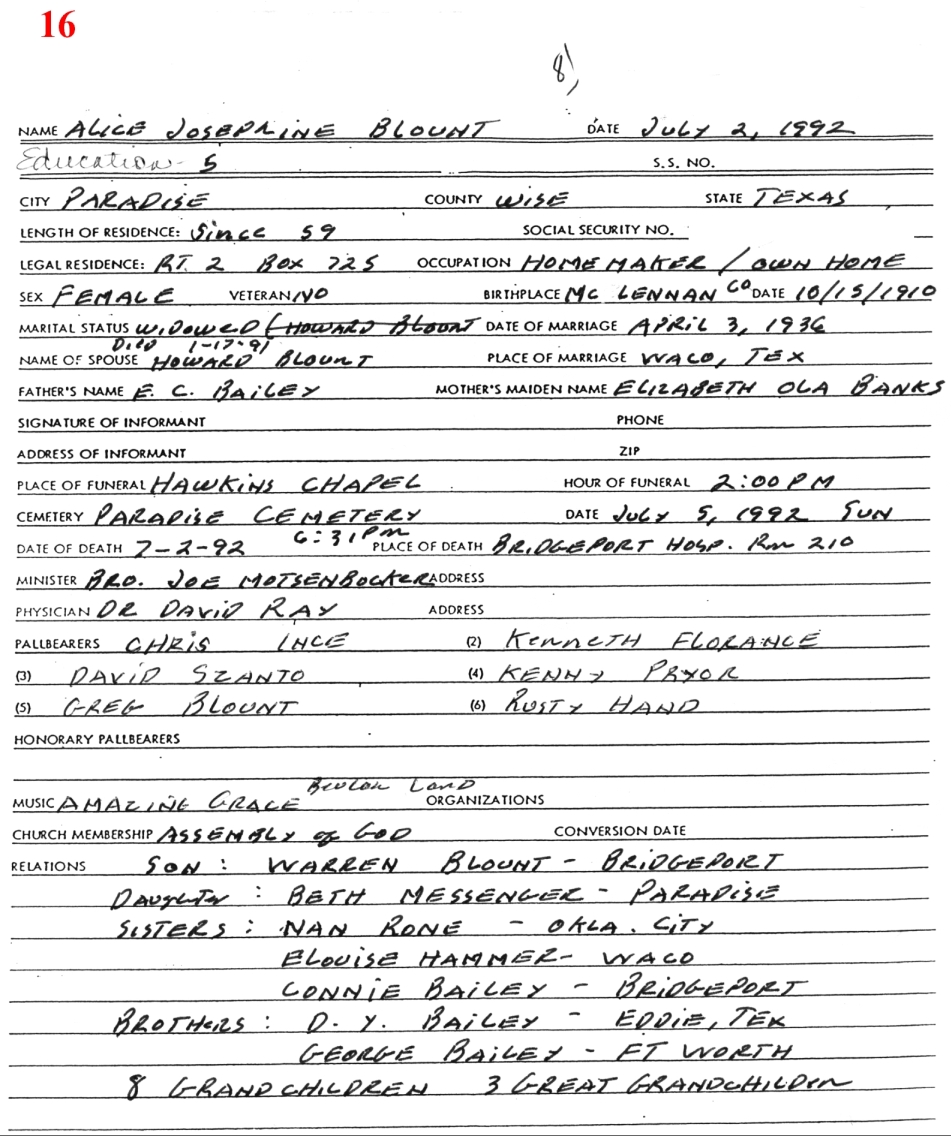 16
8)
NAME ALICE JOSEPHINE BLOUNT DATE JULY 2, 1992
Education - 5 S.S. NO.
CITY PARADISE COUNTY WISE STATE TEXAS
LENGTH OF RESIDENCE: Since 59 SOCIAL SECURITY NO.
LEGAL RESIDENCE: RT. 2 BOX 725 OCCUPATION HOMEMAKER / OWN HOME
SEX FEMALE VETERAN NO BIRTHPLACE MC LENNAN CO DATE 10/15/1910
MARITAL STATUS WIDOWED (HOWARD BLOUNT DATE OF MARRIAGE APRIL 3, 1936
DIED 1-17-91
NAME OF SPOUSE HOWARD BLOUNT PLACE OF MARRIAGE WACO, TEX
FATHER'S NAME E. C. BAILEY MOTHER'S MAIDEN NAME ELIZABETH OLA BANKS
SIGNATURE OF INFORMANT PHONE
ADDRESS OF INFORMANT ZIP
PLACE OF FUNERAL HAWKINS CHAPEL HOUR OF FUNERAL 2:00 PM
CEMETERY PARADISE CEMETERY DATE JULY 5, 1992 SUN
DATE OF DEATH 7-2-92 6:31 PM PLACE OF DEATH BRIDGEPORT HOSP. Rm 210
MINISTER BRO. JOE MOTSENBOCKER ADDRESS
PHYSICIAN DR DAVID RAY ADDRESS
PALLBEARERS CHRIS INCE (2) KENNETH FLORANCE
(3) DAVID SZANTO (4) KENNY PRYOR
(5) GREG BLOUNT (6) RUSTY HAND
HONORARY PALLBEARERS
MUSIC AMAZING GRACE Beulah Land ORGANIZATIONS
CHURCH MEMBERSHIP ASSEMBLY of GOD CONVERSION DATE
RELATIONS SON: WARREN BLOUNT - BRIDGEPORT
DAUGHTER: BETH MESSENGER - PARADISE
SISTERS: NAN RONE - OKLA. CITY
ELOUISE HAMMER - WACO
CONNIE BAILEY - BRIDGEPORT
BROTHERS: D. Y. BAILEY - EDDIE, TEX
GEORGE BAILEY - FT WORTH
8 GRANDCHILDREN 3 GREAT GRANDCHILDREN